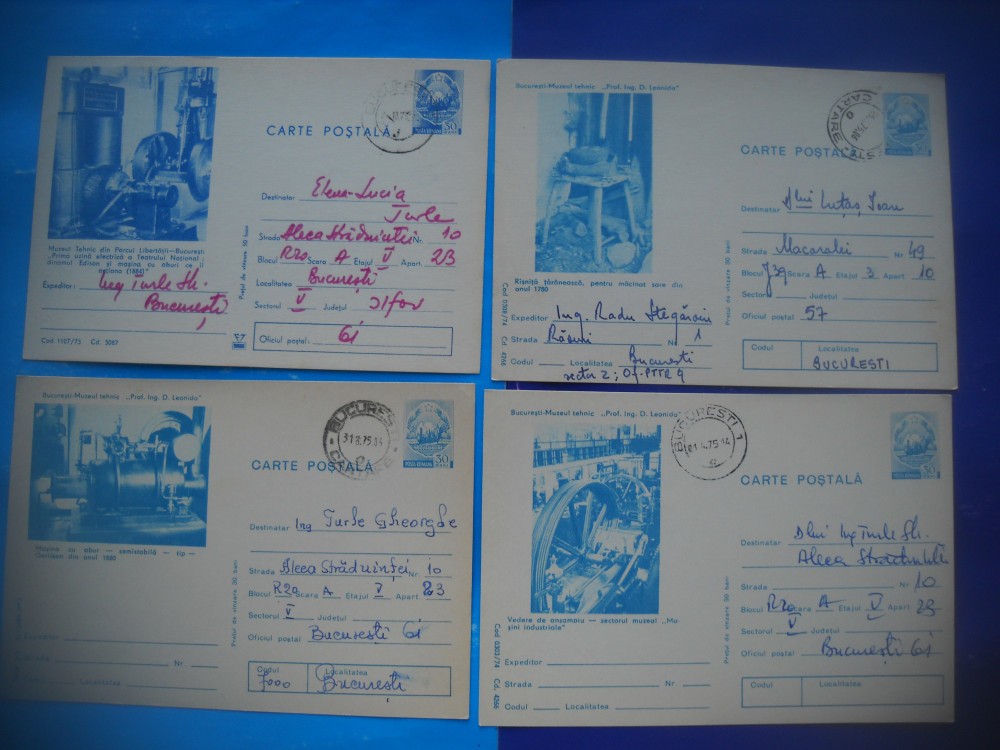 CARTE POȘTALĂ
POSTA ROMANA
50
BANI
Destinatar Elena-Lucia
Turle
Strada Aleea Străduinței Nr. 10
Blocul R20 Scara A Etajul V Apart. 23
Localitatea București
Sectorul V Județul Ilfov
Oficiul poștal: 61
Prețul de vînzare 30 bani
Muzeul Tehnic din Parcul Libertății—București:
"Prima uzină electrică a Teatrului Național;
dinamul Edison și mașina cu aburi ce îl
acționa (1884)"
Expeditor: Ing Turle Gh.
București
Cod 1107/73 Cd. 5087
București-Muzeul tehnic „Prof. Ing. D. Leonida"
CARTARE
CARTE POȘTALĂ
Destinatar Dlui Lutaș Ioan
Strada Macaralei Nr 49
Blocul J39 Scara A Etajul 3 Apart 10
Sectorul Județul
Oficiul poștal 57
Codul Localitatea
BUCURESTI
Prețul de vînzare 30 bani
Rîșniță țărănească, pentru măcinat sare din
anul 1780
Expeditor Ing. Radu Stegăroiu
Strada Răduri Nr 1
Codul Localitatea București
sector 2; Of. PTTR 9
Cod 0308/74 Cd. 4266
București-Muzeul tehnic „Prof. Ing. D. Leonida"
BUCURESTI
CARTARE
CARTE POȘTALĂ
POSTA ROMANA
30
BANI
Mașina cu aburi — semistabilă — tip
din anul 1880
Destinatar Ing Turle Gheorghe
Strada Aleea Străduinței Nr 10
Blocul R20 Scara A Etajul V Apart 23
Sectorul V Județul
Oficiul poștal București 61
Codul Localitatea
7000 București
Prețul de vînzare 30 bani
Expeditor
Nr.
Localitatea
București-Muzeul tehnic „Prof. Ing. D. Leonida"
BUCURESTI 1
CARTE POȘTALĂ
30
Destinatar Dlui Ing Turle Gh.
Aleea Străduinței
Strada Nr 10
Blocul R20 Scara A Etajul V Apart 23
Sectorul V Județul
Oficiul poștal București 61
Codul Localitatea
Prețul de vînzare 30 bani
Vedere de ansamblu — sectorul muzeal „Ma-
șini industriale"
Expeditor
Strada Nr
Codul Localitatea
Cod 0303/74 Cd. 4266